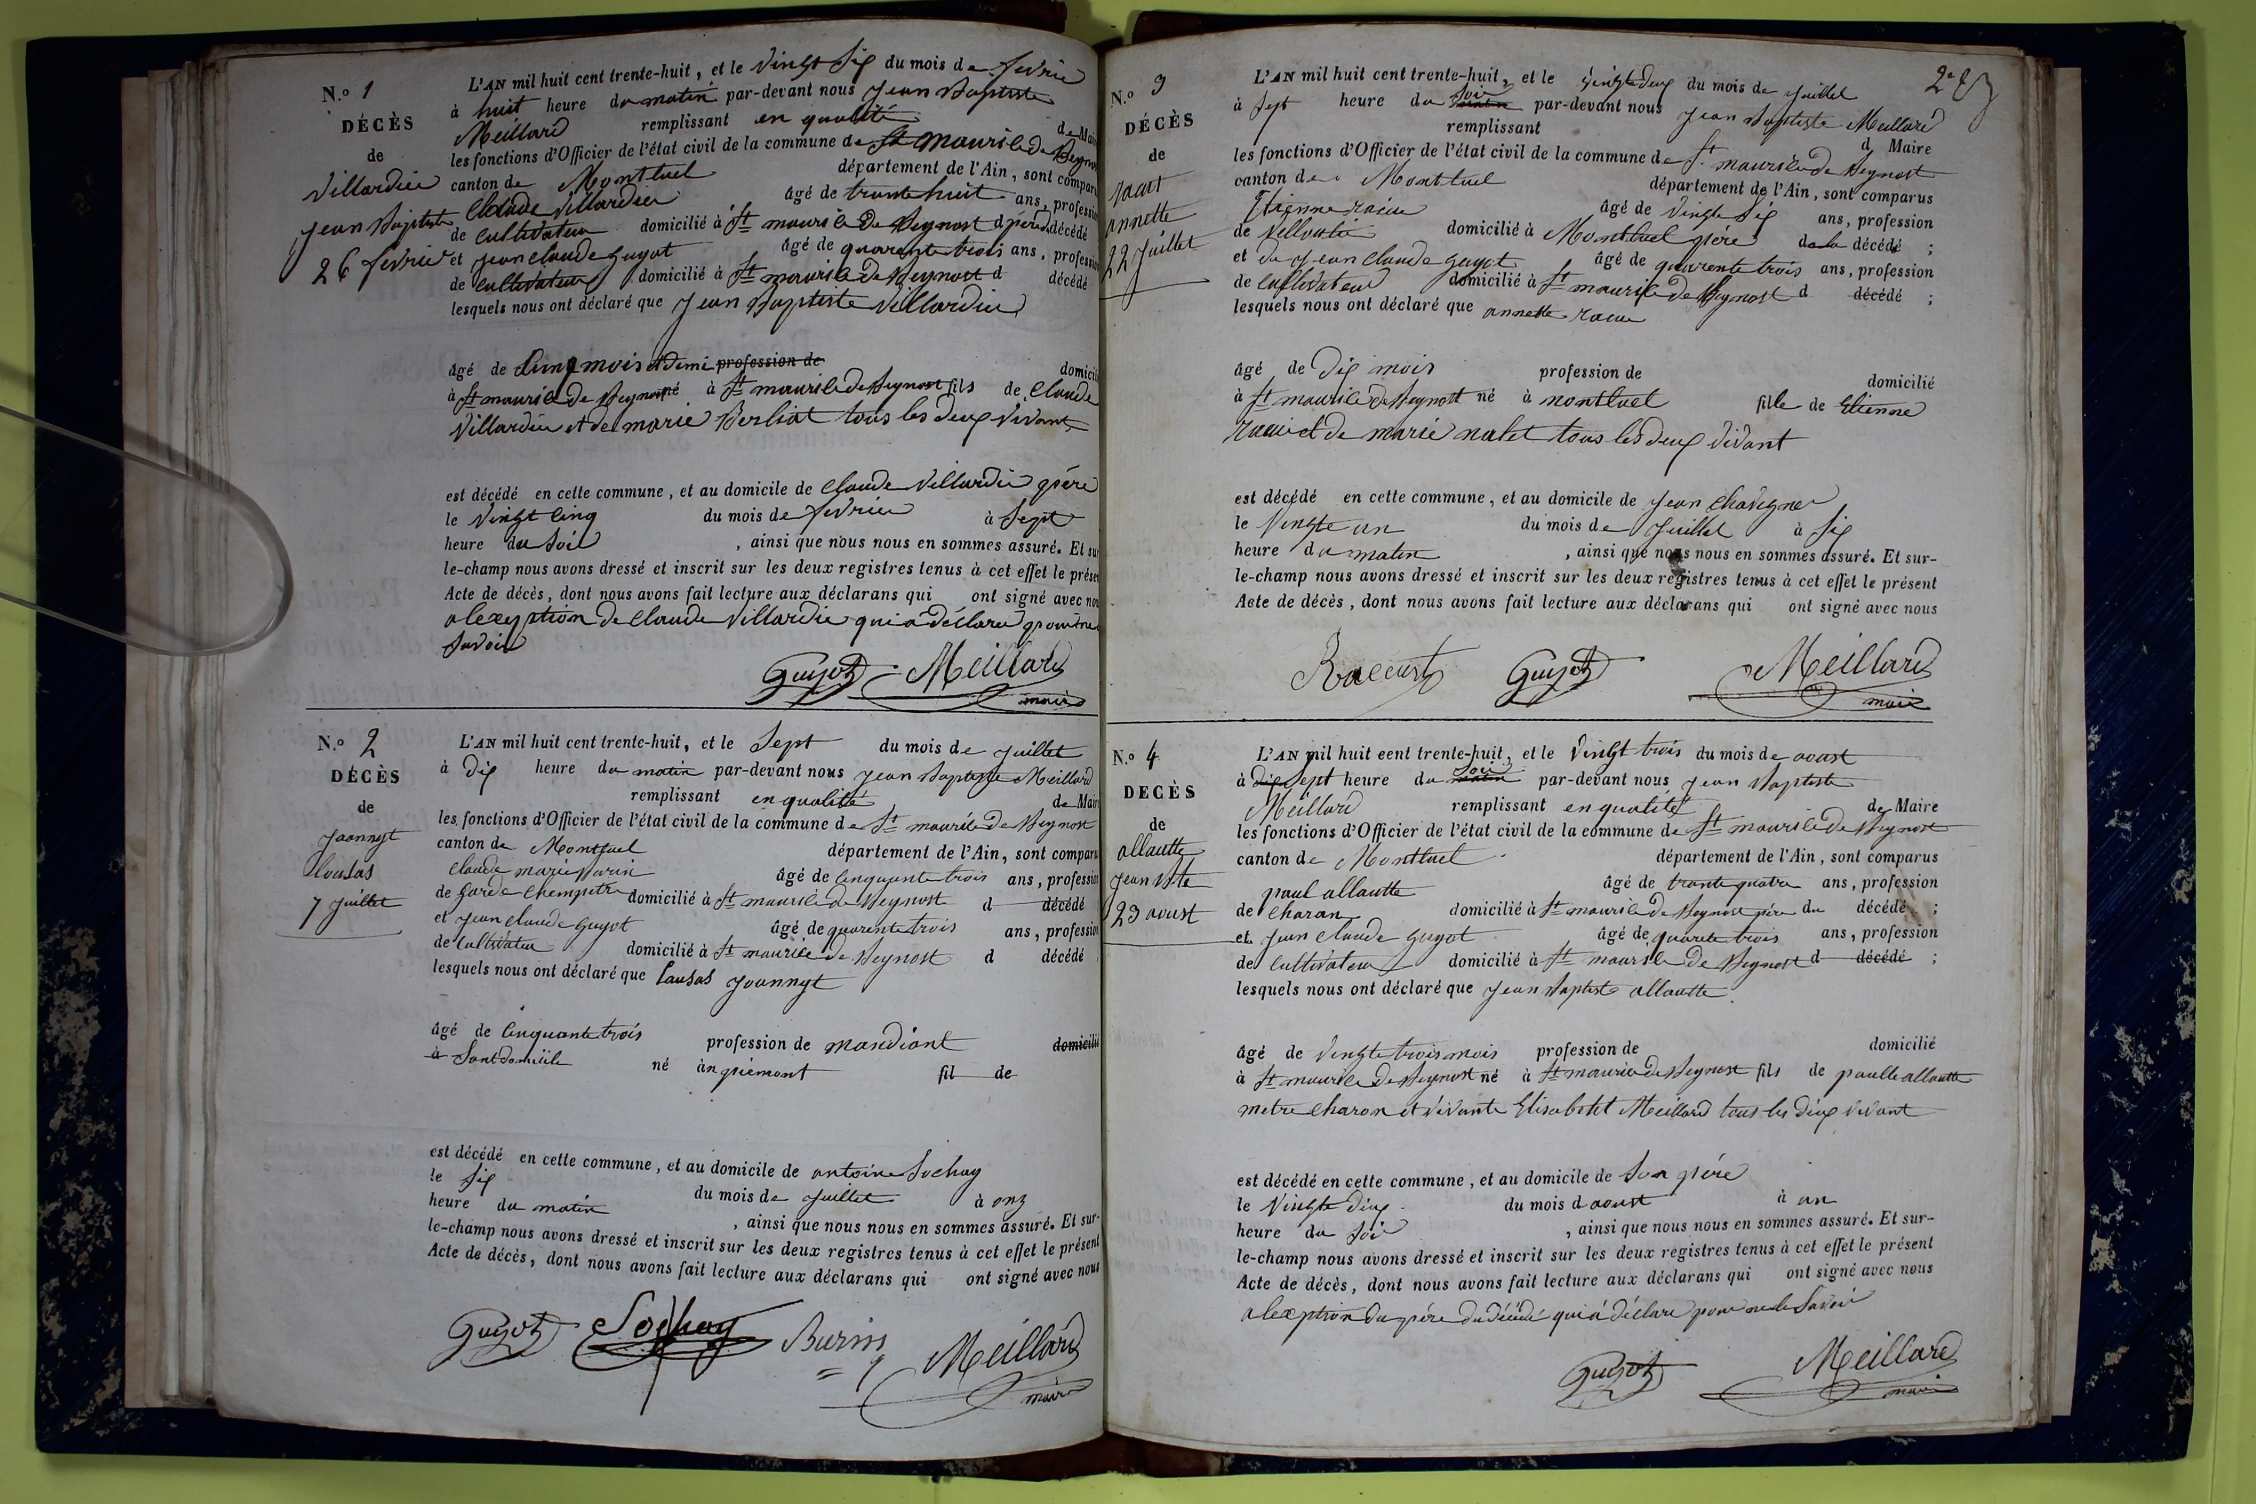 N.o 1
DÉCÈS
de
Villardiu
jean Baptiste
26 fevrier
L'AN mil huit cent trente-huit, et le vingt six du mois de fevrie
à huit heure du matin par-devant nous jean Baptiste
Meillard remplissant en qualité de Mai
les fonctions d'Officier de l'état civil de la commune de St maurice de Beyno
canton de Montluel département de l'Ain, sont compar
Claude Villardiu âgé de trante huit ans, professio
de cultivateur domicilié à St maurice de Beynost d père décédé
et jean claude guyot âgé de quarente trois ans, professio
de cultivateur domicilié à St maurice de Beynost d décédé
lesquels nous ont déclaré que jean Baptiste Villardiu
âgé de cinq mois et demi profession de domicili
à St maurice de Beynost né à St maurice de Beynost fils de Claude
Villardiu et de marie Berliat tous les deux vivant
est décédé en cette commune, et au domicile de claude Villardiu père
le vingt cinq du mois de fevrier à sept
heure du soir , ainsi que nous nous en sommes assuré. Et su
le-champ nous avons dressé et inscrit sur les deux registres tenus à cet effet le prése
Acte de décès, dont nous avons fait lecture aux déclarans qui ont signé avec no
alexeption de claude Villardiu qui a déclaré pour ne
savoir
Guyot Meillard
maire
N.o 2
DÉCÈS
de
joannyt
lousas
7 juillet
L'AN mil huit cent trente-huit, et le sept du mois de juillet
à dix heure du matin par-devant nous jean Baptiste Meillard
remplissant en qualité de Mair
les fonctions d'Officier de l'état civil de la commune de St maurice de Beynost
canton de Montluel département de l'Ain, sont compar
claude marie Burin âgé de cinquante trois ans, professio
de garde champetre domicilié à St maurice de Beynost d décédé
et jean claude guyot âgé de quarente trois ans, professio
de cultivateur domicilié à St maurice de Beynost d décédé
lesquels nous ont déclaré que lausas joannyt
âgé de cinquante trois profession de mandiant domicilié
à sant domicile né àn piémont fil de
est décédé en cette commune, et au domicile de antoine Sochay
le six du mois de juillet à onz
heure du matin , ainsi que nous nous en sommes assuré. Et sur-
le-champ nous avons dressé et inscrit sur les deux registres tenus à cet effet le présent
Acte de décès, dont nous avons fait lecture aux déclarans qui ont signé avec nous
Guyot Sochay Burin Meillard
maire
2e
N.o 3
DÉCÈS
de
annette
22 juillet
L'AN mil huit cent trente-huit, et le vingte deux du mois de juillet
à sept heure du matin soir par-devant nous jean Baptiste Meillard
remplissant d Maire
les fonctions d'Officier de l'état civil de la commune de St maurice de Beynost
canton de Montluel département de l'Ain, sont comparus
Etienne racur âgé de vingte six ans, profession
de domicilié à Montluel père de la décédé ;
et du jean claude guyot âgé de quarente trois ans, profession
de cultivateur domicilié à St maurice de Beynost d décédé ;
lesquels nous ont déclaré que annette racur
âgé de dix mois profession de domicilié
à St maurice de Beynost né à montluel fille de Etienne
racur et de marie natet tous les deux vivant
est décédé en cette commune, et au domicile de jean chavagne
le vingte un du mois de juillet à six
heure du matin , ainsi que nous nous en sommes assuré. Et sur-
le-champ nous avons dressé et inscrit sur les deux registres tenus à cet effet le présent
Acte de décès, dont nous avons fait lecture aux déclarans qui ont signé avec nous
Raccurt Guyot Meillard
maire
N.o 4
DECÈS
de
allautte
jean Bte
23 aoust
L'AN mil huit cent trente-huit, et le vingt trois du mois de aoust
à dix sept heure du matin soir par-devant nous jean Baptiste
Meillard remplissant en qualité de Maire
les fonctions d'Officier de l'état civil de la commune de St maurice de Beynost
canton de Montluel département de l'Ain, sont comparus
paul allautte âgé de trante quatre ans, profession
de charon domicilié à St maurice de Beynost père du décédé ;
et jean claude guyot âgé de quarete trois ans, profession
de cultivateur domicilié à St maurice de Beynost d décédé ;
lesquels nous ont déclaré que jean Baptiste allautte
âgé de vingte trois mois profession de domicilié
à St maurice de Beynost né à St maurice de Beynost fils de paulle allautte
metre charon et vivante Elisabetht Meillard tous les deux vivant
est décédé en cette commune, et au domicile de son père
le vingte deux du mois d aoust à un
heure du soir , ainsi que nous nous en sommes assuré. Et sur-
le-champ nous avons dressé et inscrit sur les deux registres tenus à cet effet le présent
Acte de décès, dont nous avons fait lecture aux déclarans qui ont signé avec nous
alexption du père du décédé qui a déclaré pour ne le savoir
Guyot Meillard
maire